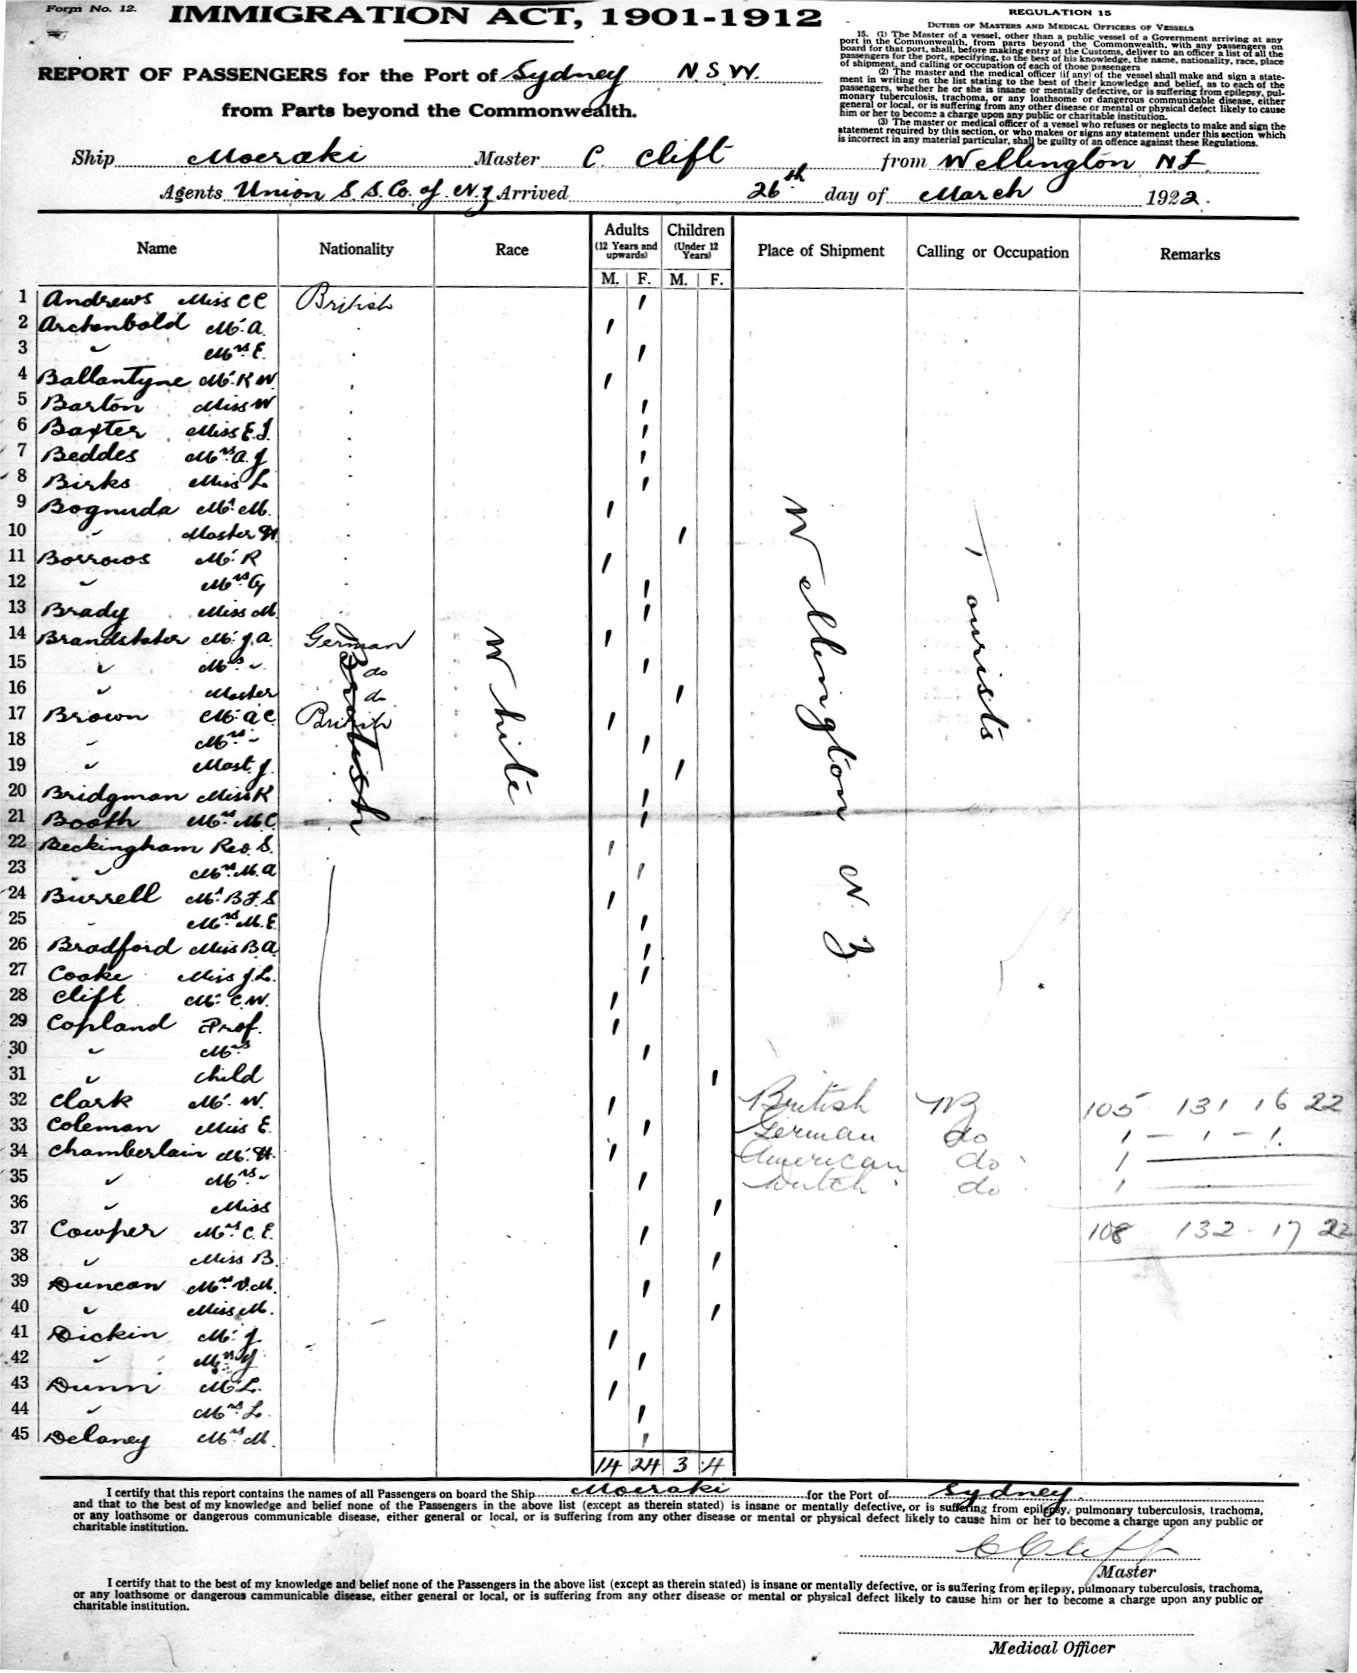 Form No. 12.
IMMIGRATION ACT, 1901-1912
REPORT OF PASSENGERS for the Port of Sydney N S W.
from Parts beyond the Commonwealth.
REGULATION 15
DUTIES OF MASTERS AND MEDICAL OFFICERS OF VESSELS
15. (1) The Master of a vessel, other than a public vessel of a Government arriving at any
port in the Commonwealth, from parts beyond the Commonwealth, with any passengers on
board for that port, shall, before making entry at the Customs, deliver to an officer a list of all the
passengers for the port, specifying, to the best of his knowledge, the name, nationality, race, place
of shipment, and calling or occupation of each of those passengers
(2) The master and the medical officer (if any) of the vessel shall make and sign a state-
ment in writing on the list stating to the best of their knowledge and belief, as to each of the
passengers, whether he or she is insane or mentally defective, or is suffering from epilepsy, pul-
monary tuberculosis, trachoma, or any loathsome or dangerous communicable disease, either
general or local, or is suffering from any other disease or mental or physical defect likely to cause
him or her to become a charge upon any public or charitable institution.
(3) The master or medical officer of a vessel who refuses or neglects to make and sign the
statement required by this section, or who makes or signs any statement under this section which
is incorrect in any material particular, shall be guilty of an offence against these Regulations.
Ship Moeraki Master C. Clift from Wellington N Z.
Agents Union S. S. Co. of N.Z Arrived 26th day of March 1922.
Name Nationality Race Adults (12 Years and upwards) Children (Under 12 Years) Place of Shipment Calling or Occupation Remarks
M. F. M. F.
1 Andrews Miss C C British
2 Archenbold Mr. A.
3 " Mrs E.
4 Ballantyne Mr. K W
5 Barton Miss W
6 Baxter Miss E. J.
7 Beddes Mrs A. J
8 Birks Miss L
9 Bognuda Mr. M.
10 " Master H.
11 Borrows Mr. R
12 " Mrs G
13 Brady Miss M
14 Brandstater Mr. J. A. German
15 " Mrs " do
16 " Master do
17 Brown Mr. A C. British
18 " Mrs "
19 " Mast. J.
20 Bridgman Miss K
21 Booth Mrs M. C.
22 Beckingham Rev. S.
23 " Mrs M. A
24 Burrell Mr. B F. S
25 " Mrs M. E.
26 Bradford Miss B A.
27 Cooke Miss J. L.
28 Clift Mr. C. W.
29 Copland Prof.
30 " Mrs
31 " Child
32 Clark Mr. W.
33 Coleman Miss E.
34 Chamberlain Mr. H.
35 " Mrs "
36 " Miss
37 Cowper Mrs C. E.
38 " Miss B.
39 Duncan Mrs V. M.
40 " Miss M.
41 Dickin Mr. J.
42 " Mrs J
43 Dunn Mr. L.
44 " Mrs L.
45 Delaney Mrs M.
British
White
Wellington N. Z
Tourists
British NZ 105 131 16 22
German do 1 — 1 — 1.
American do 1
Dutch do 1
108 132 - 17 22
14 24 3 4
I certify that this report contains the names of all Passengers on board the Ship Moeraki for the Port of Sydney
and that to the best of my knowledge and belief none of the Passengers in the above list (except as therein stated) is insane or mentally defective, or is suffering from epilepsy, pulmonary tuberculosis, trachoma,
or any loathsome or dangerous communicable disease, either general or local, or is suffering from any other disease or mental or physical defect likely to cause him or her to become a charge upon any public or
charitable institution.
C Clift
Master
I certify that to the best of my knowledge and belief none of the Passengers in the above list (except as therein stated) is insane or mentally defective, or is suffering from epilepsy, pulmonary tuberculosis, trachoma,
or any loathsome or dangerous cammunicable disease, either general or local, or is suffering from any other disease or mental or physical defect likely to cause him or her to become a charge upon any public or
charitable institution.
Medical Officer